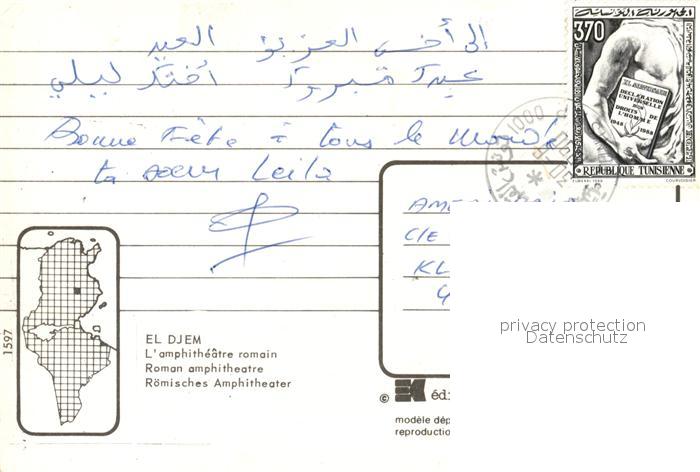 إلى أخي العزيز العيد
عيدك مبروك أختك ليلى
Bonne Fête à tous le monde
ta soeur Leila
الجمهورية التونسية
370
XL ANNIVERSAIRE
DECLARATION
UNIVERSELLE
DES
DROITS DE
L'HOMME
1948 1988
REPUBLIQUE TUNISIENNE
1000
C/E
KL
1597
EL DJEM
L'amphithéâtre romain
Roman amphitheatre
Römisches Amphitheater
© édi
modèle dép
reproductio
privacy protection
Datenschutz